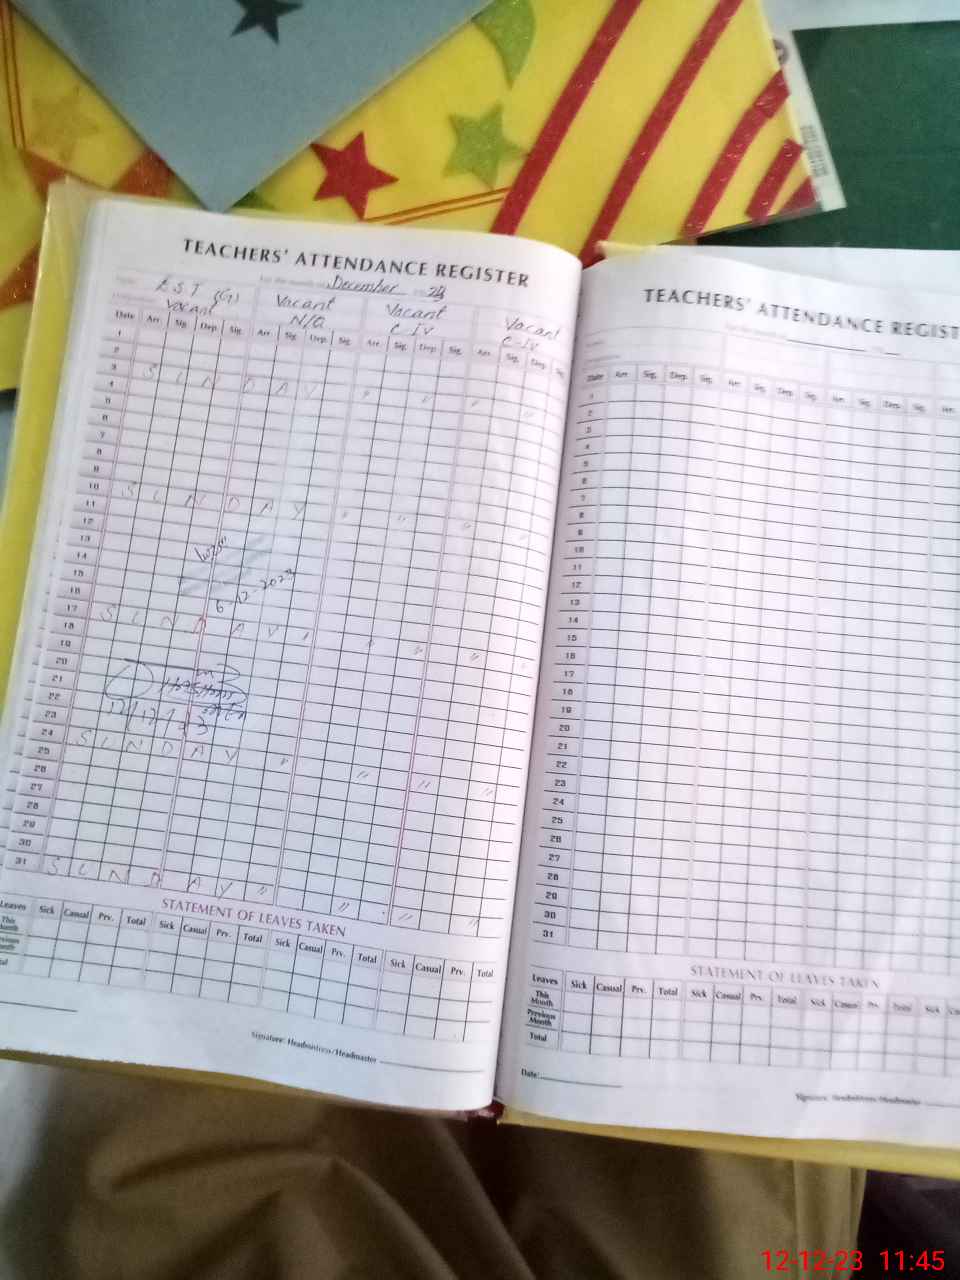 TEACHERS' ATTENDANCE REGISTER
December
E.S.T (G) Vacant Vacant Vacant
Vacant N/Q C-IV C-IV
Date Arr. Sig. Dep. Sig. Arr. Sig. Dep. Sig. Arr. Sig. Dep. Sig. Arr. Sig. Dep. Sig.
1
2
3 S U N D A Y " " " "
4
5
6
7
8
9
10 S U N D A Y " " " "
11
12
13
14
15
6-12-2023
16
17 S U N D A Y " " " "
18
19
20
21
22
12/12/23
23
24 S U N D A Y " " " "
25
26
27
28
29
30
31 S U N D A Y " " " "
STATEMENT OF LEAVES TAKEN
Leaves Sick Casual Prv. Total Sick Casual Prv. Total Sick Casual Prv. Total Sick Casual Prv. Total
This Month
Previous Month
Total
Signature: Headmistress/Headmaster
TEACHERS' ATTENDANCE REGIST
Date Arr. Sig. Dep. Sig. Arr. Sig. Dep. Sig. Arr. Sig. Dep. Sig. Arr.
1
2
3
4
5
6
7
8
9
10
11
12
13
14
15
16
17
18
19
20
21
22
23
24
25
26
27
28
29
30
31
STATEMENT OF LEAVES TAKEN
Leaves Sick Casual Prv. Total Sick Casual Prv. Total Sick Casual Prv. Total Sick
This Month
Previous Month
Total
Date:
Signature: Headmistress/Headmaster
12-12-23 11:45